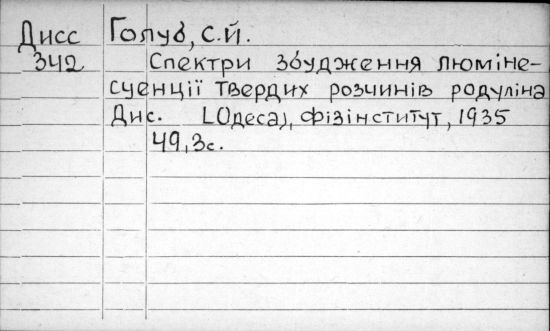 Дисс Голуб, С.Й.
342 Спектри збудження люміне-
сценції твердих розчинів родуліна
Дис. [Одеса], Фізінститут, 1935
49,3с.